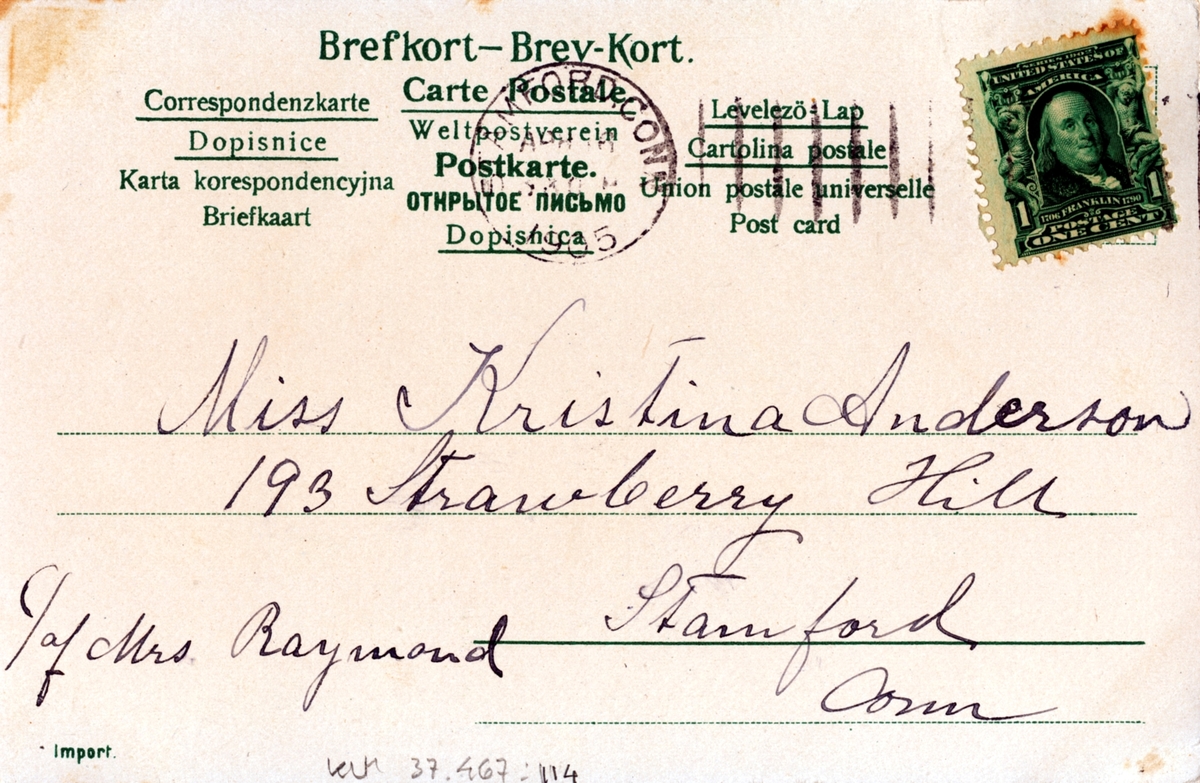 Brefkort — Brev-Kort.
Correspondenzkarte
Dopisnice
Karta korespondencyjna
Briefkaart
Carte Postale
Weltpostverein
Postkarte.
ОТКРЫТОЕ ПИСЬМО
Dopisnica
Levelezö-Lap
Cartolina postale
Union postale universelle
Post card
STAMFORD, CONN
1905
SERIES 1902
UNITED STATES OF
AMERICA
1706 FRANKLIN 1790
1 1
POSTAGE
ONE CENT
Miss Kristina Anderson
193 Strawberry Hill
Stamford
Conn
c/of Mrs Raymond
Import.
37.467:114